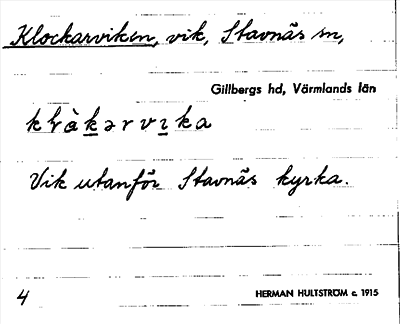 Klockarviken, vik, Stavnäs sn,
Gillbergs hd, Värmlands län
Vik utanför Stavnäs kyrka.
4
HERMAN HULTSTRÖM c. 1915